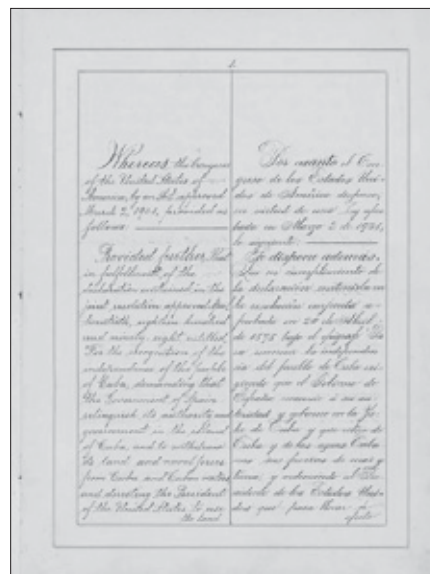 1.
Whereas the Congress
of the United States of
America, by an Act approved
March 2, 1901, provided as
follows:
Provided further, That
in fulfillment of the
declaration contained in the
joint resolution approved April
twentieth, eighteen hundred
and ninety-eight, entitled,
"For the recognition of the
independence of the people
of Cuba, demanding that
the Government of Spain
relinquish its authority and
government in the island
of Cuba, and to withdraw
its land and naval forces
from Cuba and Cuban waters,
and directing the President
of the United States to use
the land
Por cuanto el Con-
greso de los Estados Uni-
dos de América dispuso,
en virtud de una Ley apro-
bada en Marzo 2 de 1901,
lo siguiente:
Se dispone además,
Que en cumplimiento de
la declaración contenida en
la resolución conjunta a-
probada en 20 de Abril
de
bajo el epígrafe
reconocer la independen-
cia del pueblo de Cuba exi-
giendo que el Gobierno de
España renuncie á su au-
toridad y gobierno en la Is-
la de Cuba y que retire de
Cuba y de las aguas Cuba-
nas sus fuerzas de mar y
tierra, y ordenando al Pre-
sidente de los Estados Uni-
dos que para llevar á
efecto